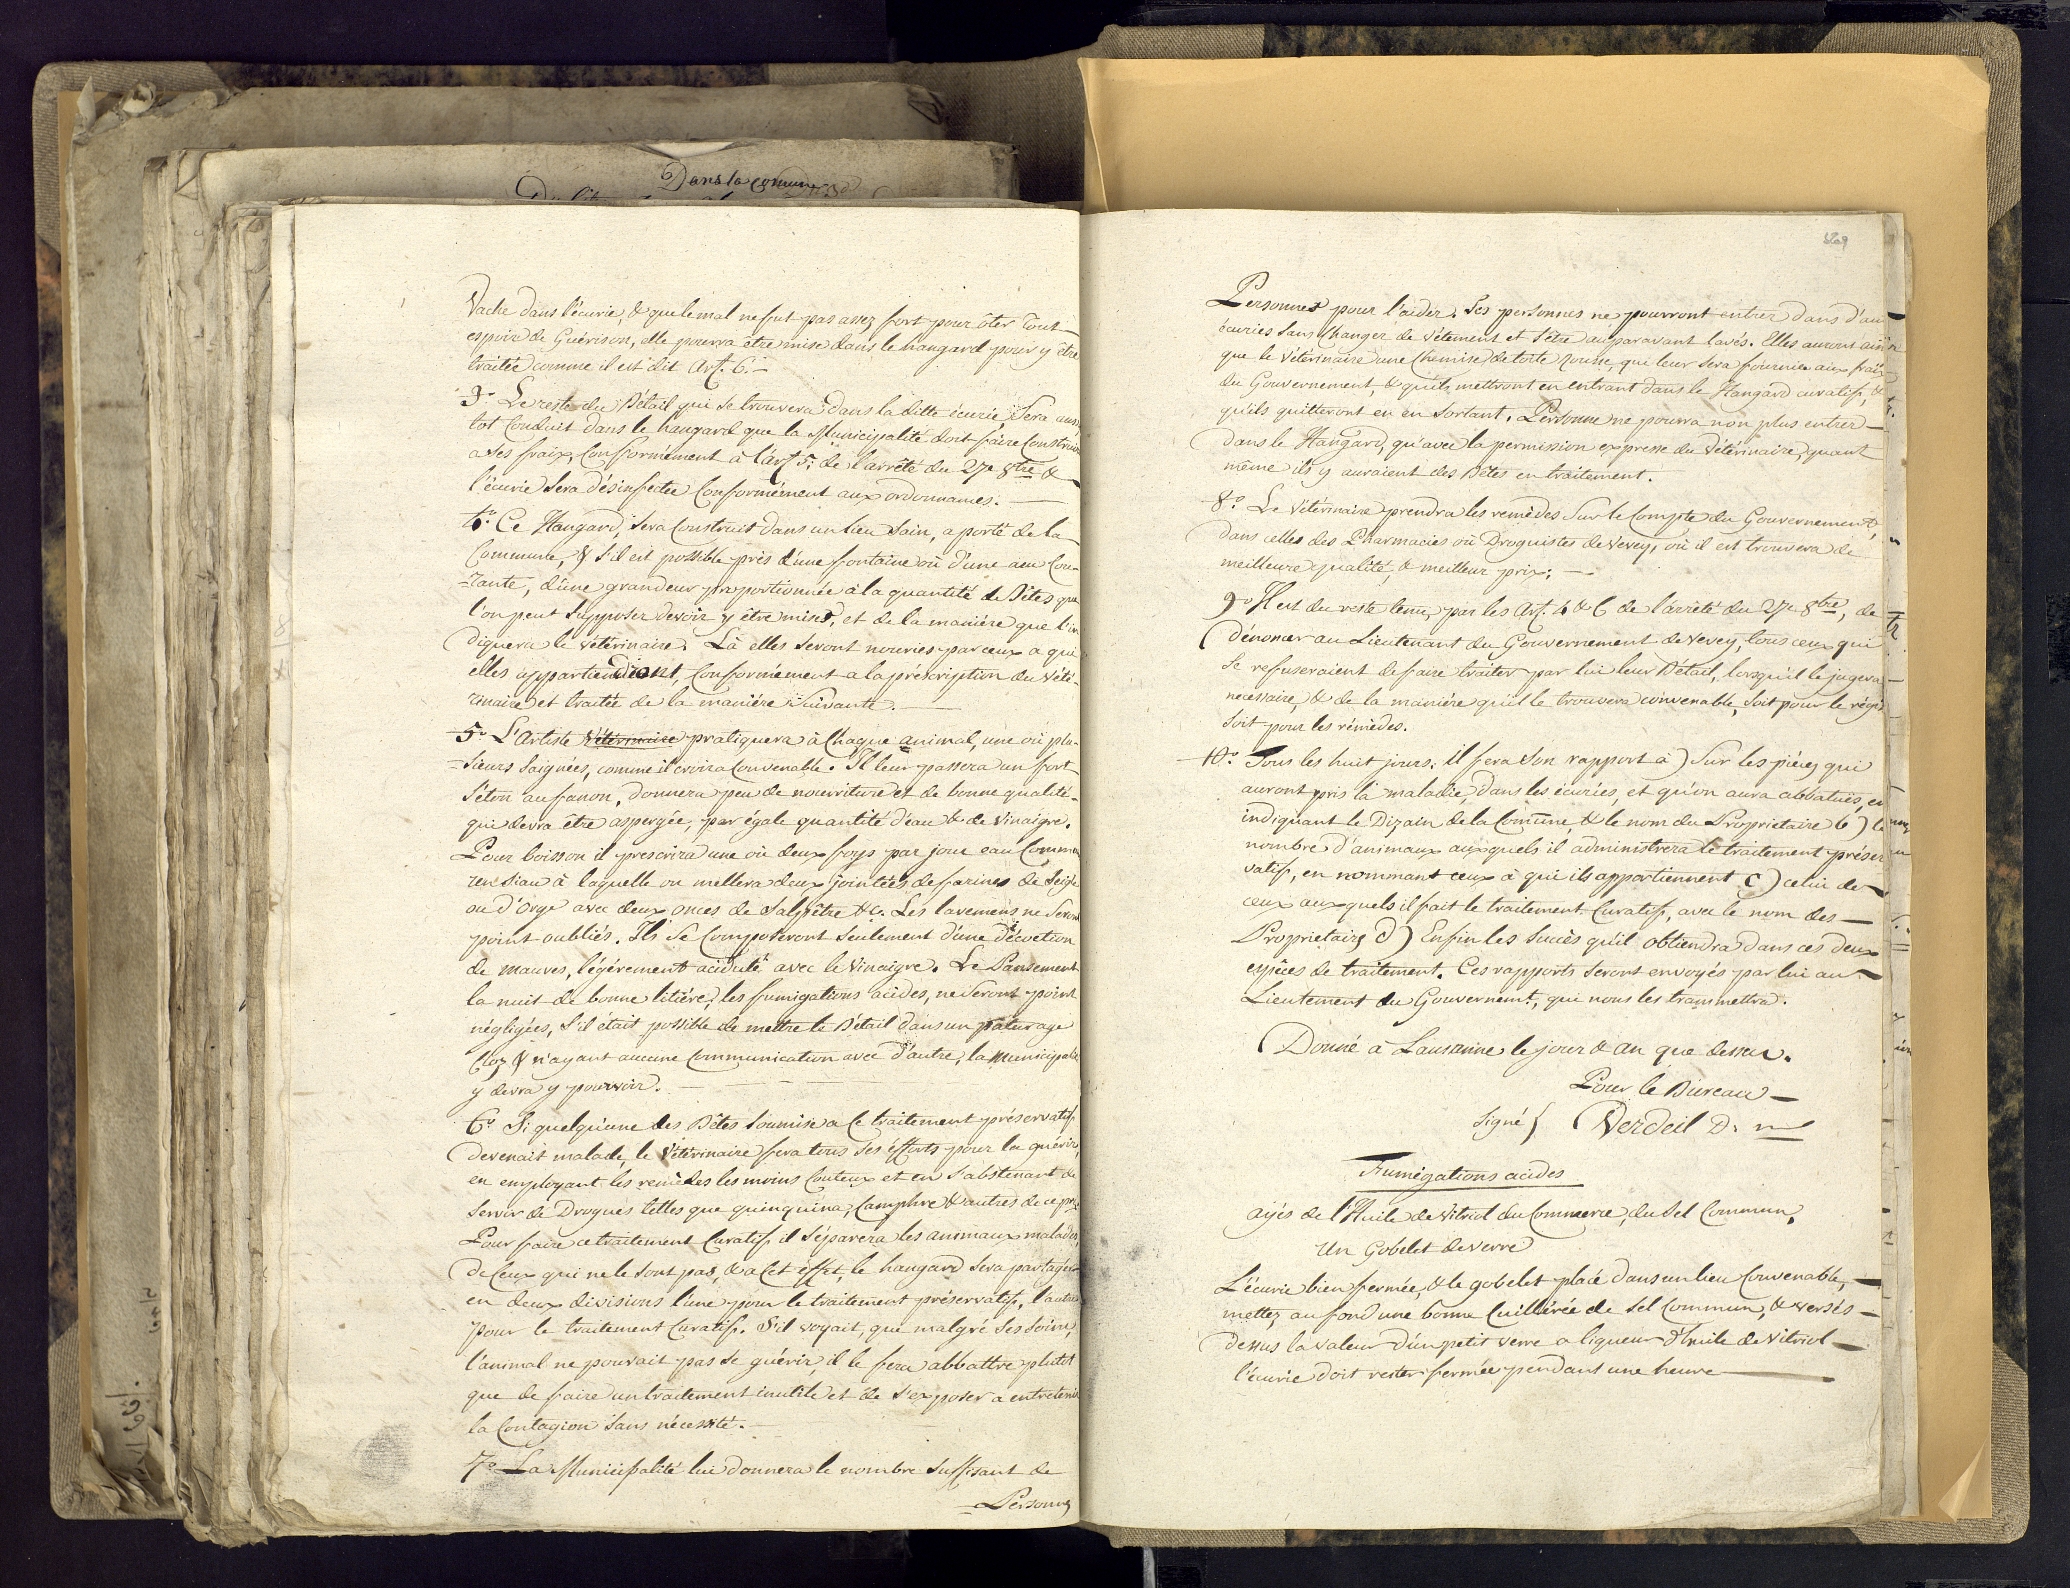 Dans la comune
Vache dans l'écurie, & que le mal ne fut pas assez fort pour ôter tout
espoir de Guérison, elle pourra être mise dans le hangard pour y être
traitée comme il est dit Art. 6.
3o Le reste du Bétail qui se trouvera dans la ditte écurie, sera aussi
tot Conduit dans le hangard que la Municipalité doit faire Construire
a ses fraix, Conformément à l'art 5: de l'arrêté du 27e 8bre &
l'écurie sera désinfectée Conformément aux ordonnances.
4o Ce Hangard, sera Construit dans un lieu Sain, a porté de la
Commune, & s'il est possible près d'une fontaine où d'une aeu Cou-
-rante, d'une grandeur proportionnée à la quantité de Bêtes que
l'on peut supposer devoir y être mises, et de la manière que l'in
diquera le Vétérinaire. Là elles seront nouries par ceux a qui
elles appartiendront, Conformément a la préscription du Vété-
rinaire et traitée de la manière Suivante.
5o L'Artiste Vétérinaire pratiquera à Chaque animal, une où plu-
-sieurs saignées, comme il croira Convenable. Il leur passera un fort
séton au fanon, donnera peu de nourriture et de bonne qualité-
qui devra être aspergée, par égale quantité d'eau & de Vinaigre.
Pour boisson il prescrira une où deux foys par jour eau Commune
un siau à laquelle on mettera deux jointées de farines de Seigle
ou d'Orge avec deux onces de Salpêtre &c. Les lavemens ne seront
point oubliés. Ils se Composeront seulement d'une Décoction
de mauves, légérement acidulé avec le Vinaigre. Le Pansement
la nuit de bonne litière, les fumigations acides, ne Seront point
négligées, S'il était possible de mettre le Bétail dans un paturage
Clos & n'ayant aucune Communication avec d'autre, la Municipalité
y devra y pourvoir.
6o Si quelqu'une des Bêtes soumise a Ce traitement préservatif
devenait malade, le Vétérinaire fera tous ses éfforts pour la guérir,
en employant les remèdes les moins Couteux et en s'abstenant de
servir de Drogues telles que quinquina, Camphre & autres de ce prix
Pour faire ce traitement Curatif il séparera les animaux malades,
de Ceux qui ne le sont pas, & a Cet éffet, le hangard sera partagé
en deux divisions l'une pour le traitement préservatif, l'autre
pour le traitement Curatif. S'il voyait, que malgré ses soins,
l'animal ne pouvait pas se guérir, il le fera abbattre plutot
que de faire un traitement inutile et de s'exposer a entretenir
la Contagion sans nécessité.
7o La Municipalité lui donnera le nombre suffisant de
Personnes
Personnes pour l'aider. Ses personnes ne pourront entrer dans d'au
écuries sans Changer de vêtement et s'être auparavant lavés. Elles auront ainsi
que le Vétérinaire une Chemise de toile rousse, qui leur sera fournie aux fraix
du Gouvernement, & qu'ils mettront en entrant dans le Hangard curatif, &
qu'ils quitteront en en sortant. Personne ne pourra non plus entrer
dans le Hangard, qu'avec la permission expresse du Vétérinaire, quant
même ils y auraient des Bêtes en traitement.
8o Le Vétérinaire prendra les remèdes Sur le Compte du Gouvernement,
dans celles des Pharmacies où Droguistes de Vevey, où il en trouvera de
meilleure qualité, & meilleur prix;
9o Il est du reste tenu, par les Art. 4 & 6 de l'arrêté du 27e 8bre, de
dénoncer au Lieutenant du Gouvernement de Vevey, tous ceux qui
se refuseraient de faire traiter par lui leur Bétail, lorsqu'il le jugera
necessaire, & de la manière qu'il le trouvera convenable, soit pour le régime
soit pour les rémèdes.
10o Tous les huit jours: il fera son rapport a) Sur les pièces qui
auront pris la maladie, dans les écuries, et qu'on aura abbatues, en
indiquant le Dizain de la Comune, & le nom du Proprietaire b) le
nombre d'animaux auxquels il administrera le traitement préser
vatif, en nommant ceux à qui ils appartiennent c) celui de
ceux auxquels il fait le traitement Curatif, avec le nom des
Proprietaires d) Enfin les succès qu'il obtiendra dans ces deux
espèces de traitement. Ces rapports seront envoyés par lui au
Lieutement du Gouvernemt, qui nous les transmettra.
Donné à Lausanne le jour & an que dessus.
Pour le Bureau
signé } Verdeil D. m
Fumégations acides
ayés de l'Huile de vitriol du Commerce, du sel Commun,
Un Gobelet de verre
L'écurie bien fermée, & le gobelet placé dans un lieu Convenable,
mettez au fond une bonne Cuillérée de sel Commun, & versés
dessus la valeur d'un petit verre a liqueur d'huile de Vitriol
l'écurie doit rester fermée pendant une heure